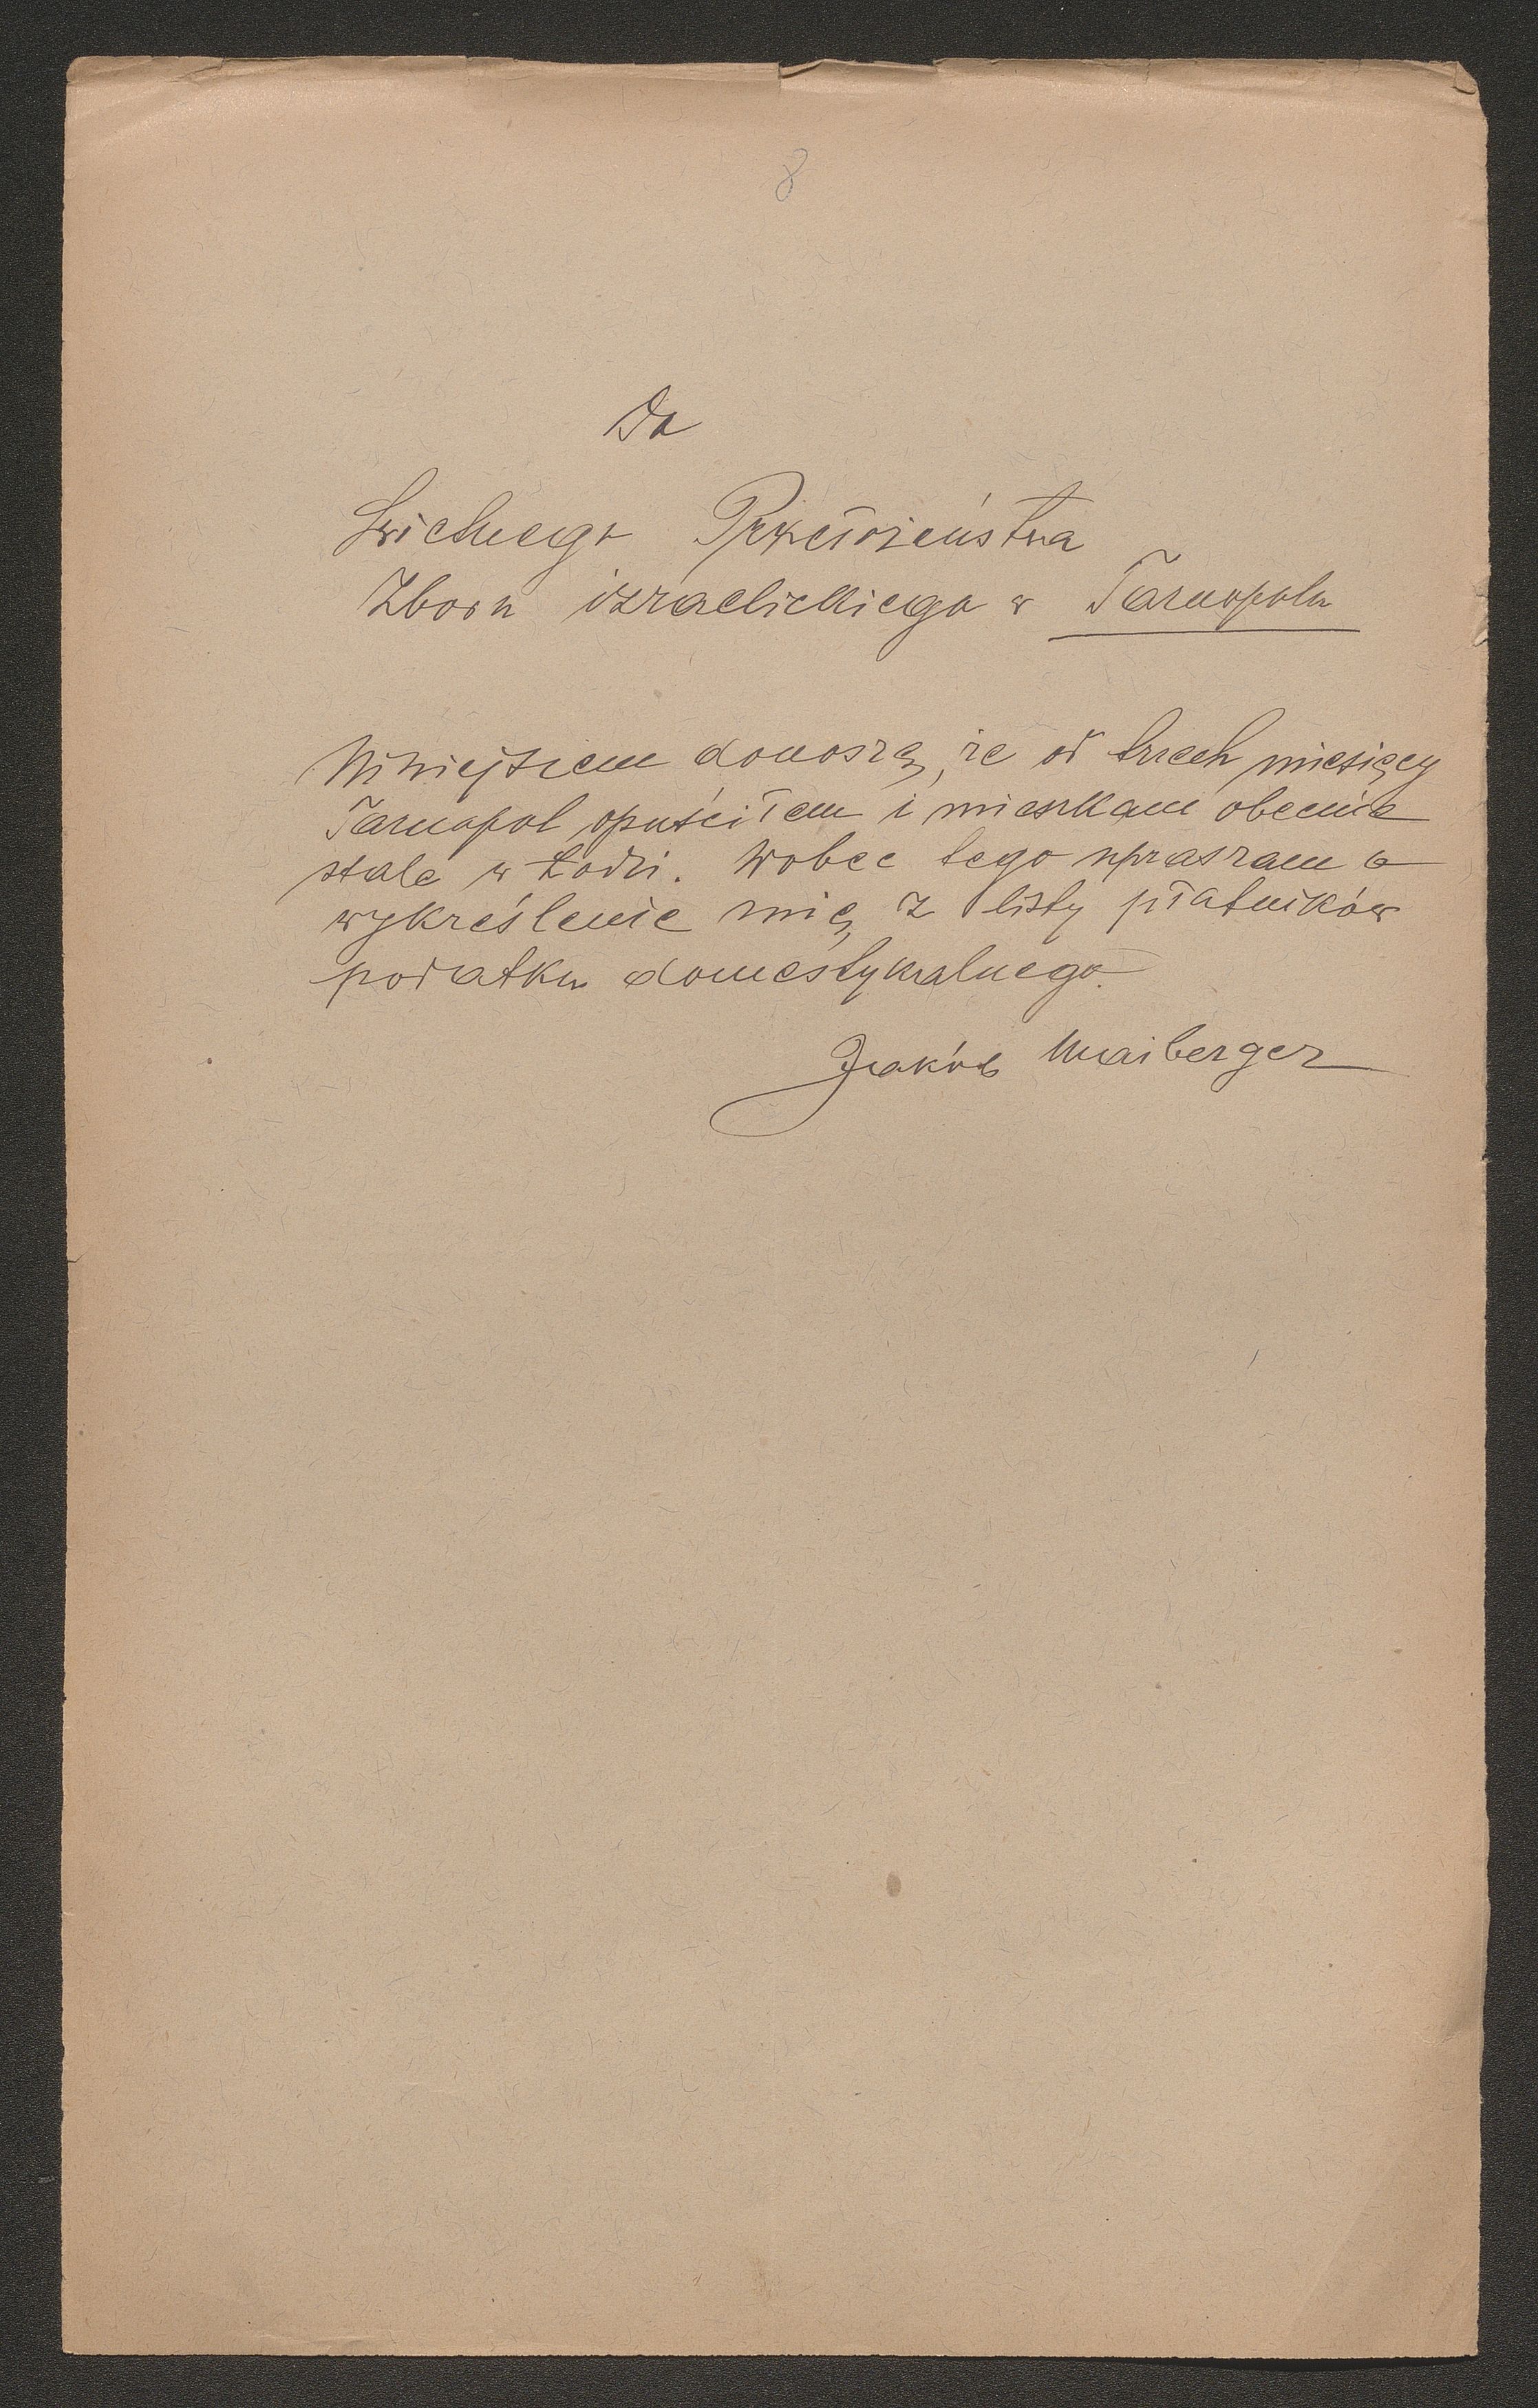 8
Do
Świetnego Przełożeństwa
Zboru izraelickiego w Tarnopolu
Niniejszem donoszę, że od trzech miesięcy
Tarnopol opuściłem i mieszkam obecnie
stale w Łodzi. Wobec tego upraszam o
wykreślenie mię z listy płatników
podatku domestykalnego.
Jakób Maiberger